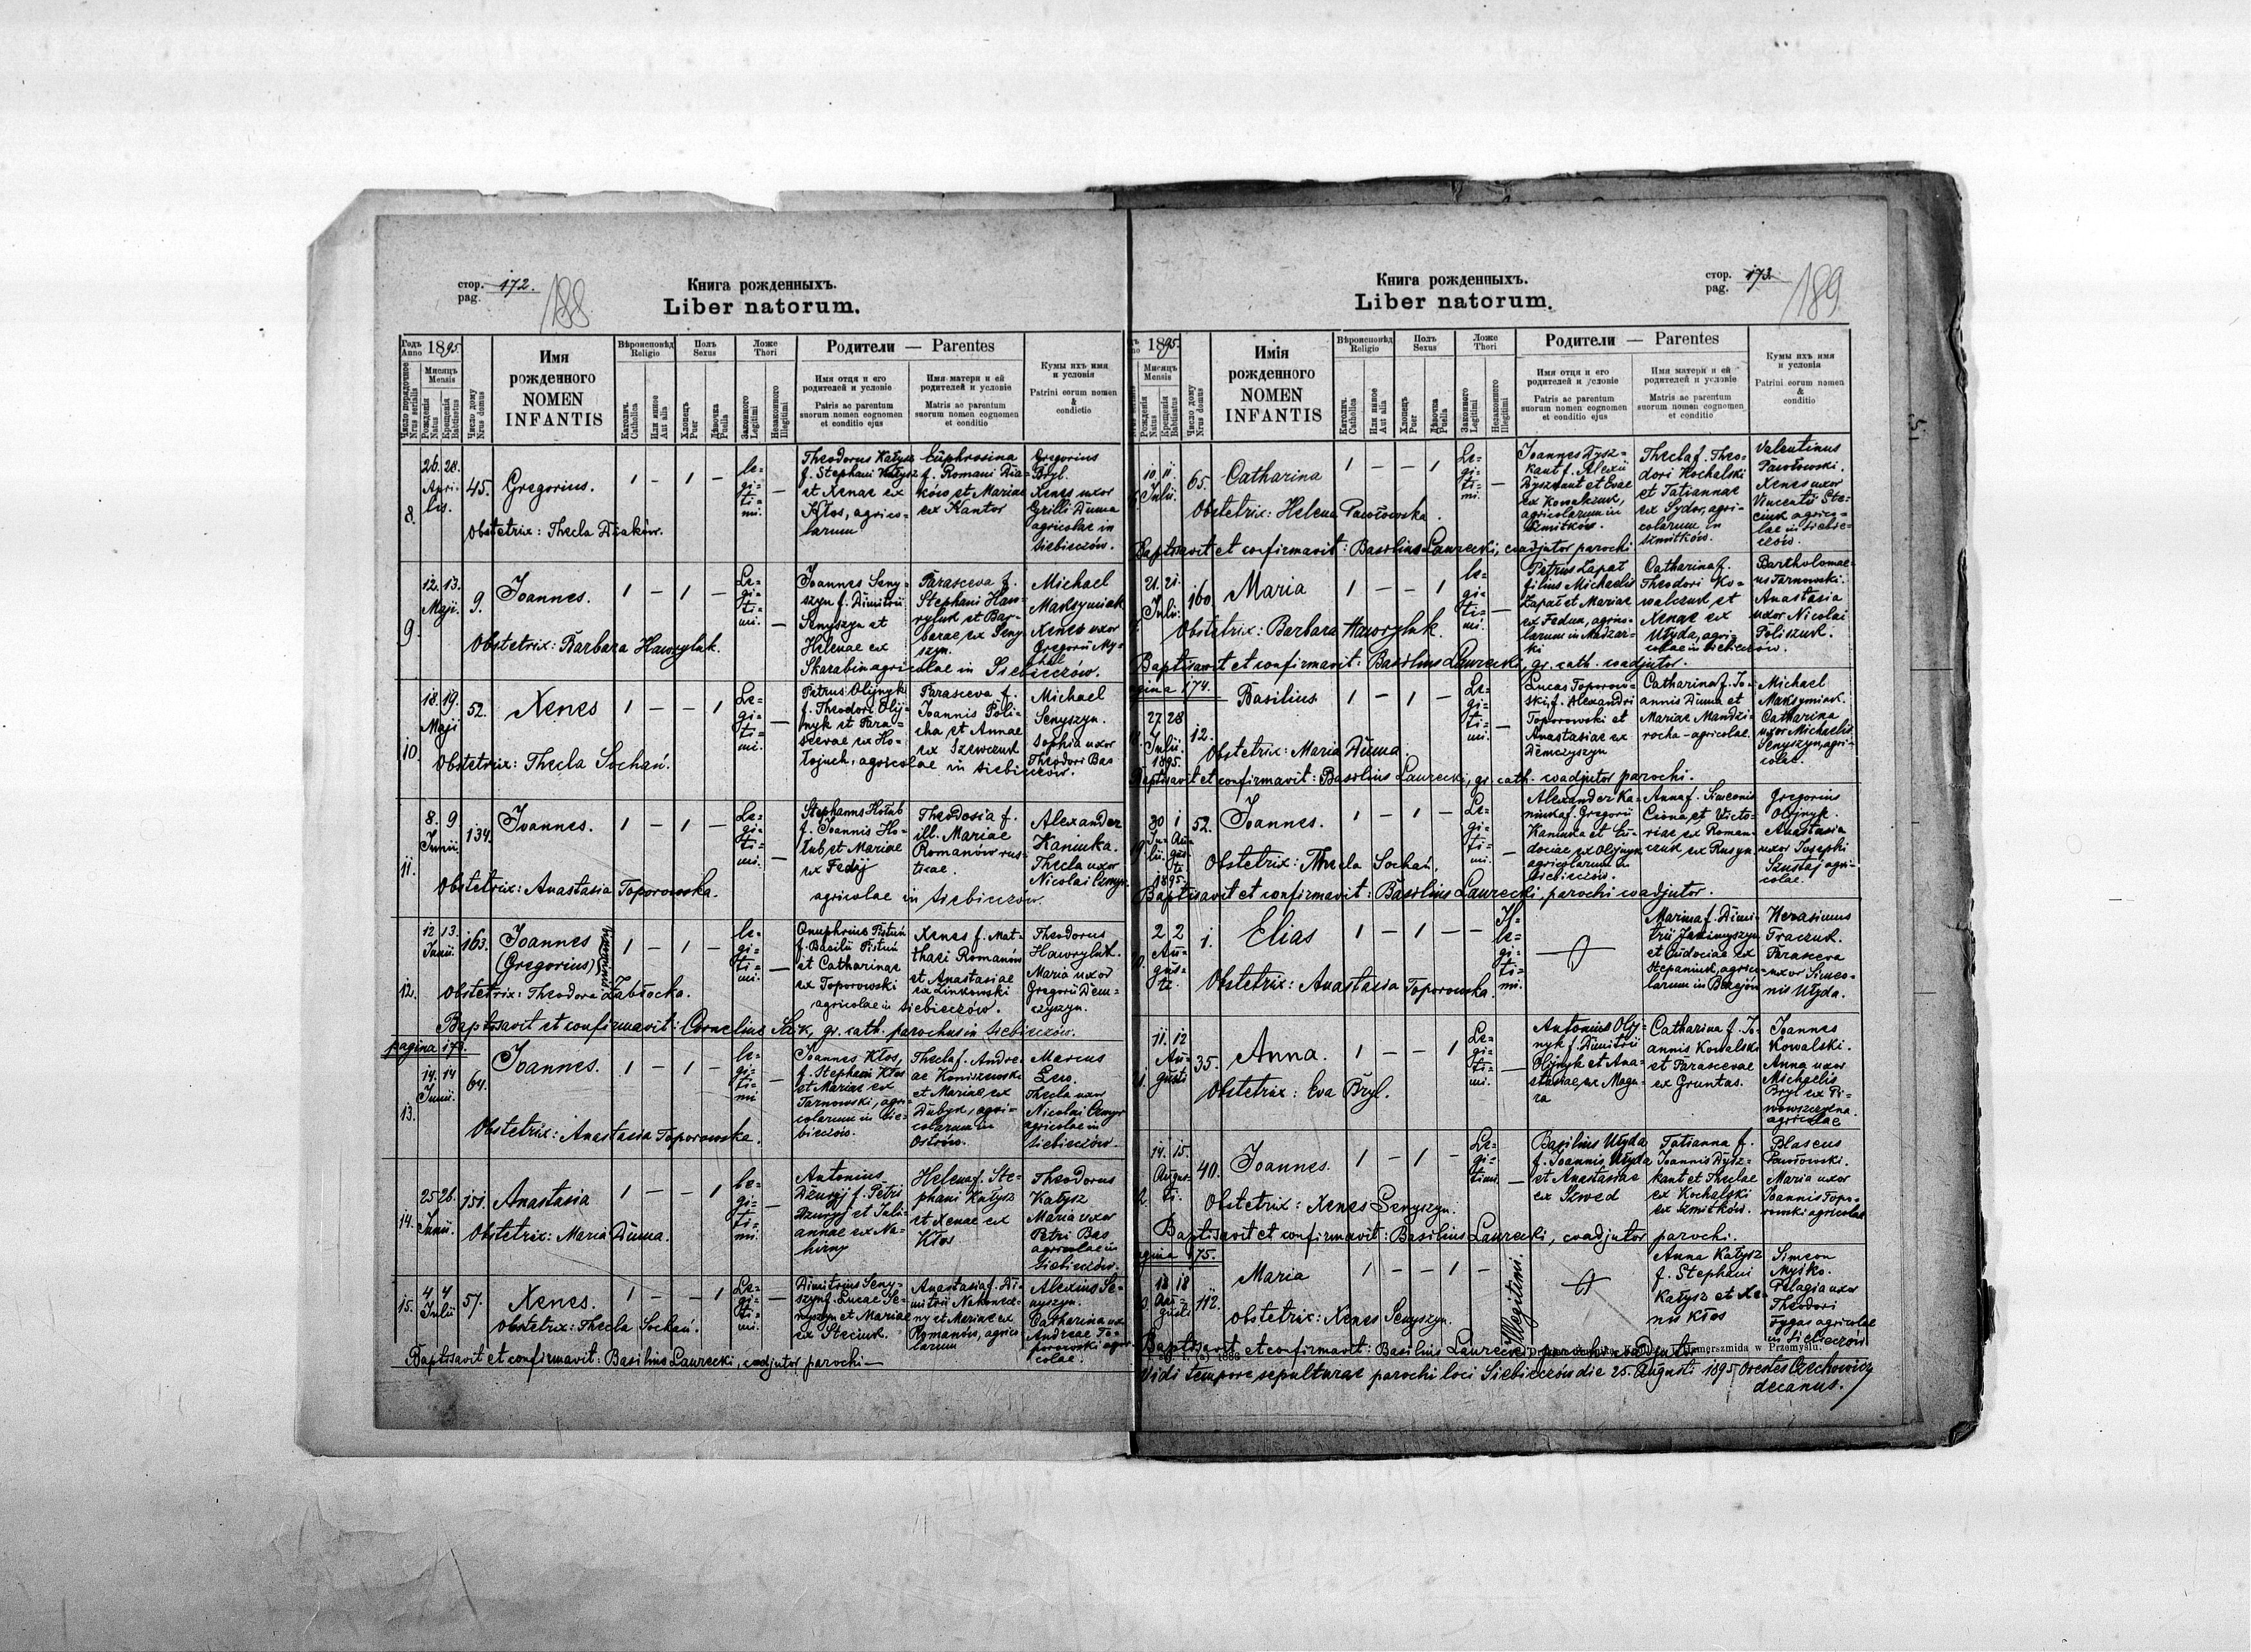 стор. pag. 172. 188
Книга рожденныхъ.
Liber natorum.
Годъ Anno 1895.
Число порядочное Nrus serialis
Мисяць Mensis
Рожденія Natus
Крещенія Babtisatus
Число дому Nrus domus
Имя рожденного
NOMEN INFANTIS
Вѣроисповѣд Religio
Католич. Catholica
Или иное Aut alia
Полъ Sexus
Хлопець Puer
Дѣвочка Puella
Ложе Thori
Законного Legitimi
Незаконного Illegitimi
Родители — Parentes
Имя отця и его родителей и условіе
Patris ac parentum suorum nomen cognomen et conditio ejus
Имя матери и ей родителей и условіе
Matris ac parentum suorum nomen cognomen et conditio
Кумы ихъ имя и условія
Patrini eorum nomen & condictio
8. 26. 28. Aprilis. 45. Gregorius. 1 – 1 – legitimi. –
Theodorus Kałysz f. Stephani Kałysz et Xenae ex Kłos, agricolarum
Euphrosina f. Romani Diaków et Mariae ex Kantor
Gregorius Bryl. Xenes uxor Grilli Duma agricolae in Siebieczów.
Obstetrix: Thecla Diaków.
9. 12. 13. Maji. 9. Joannes. 1 – 1 – Legitimi. –
Joannes Senyszyn f. Dimitrii Senyszyn et Helenae ex Skarabin agricolae in Siebieczów.
Parasceva f. Stephani Hawryluk et Barbarae ex Senyszyn.
Michael Maksymiak Xenes uxor Gregorii
Obstetrix: Barbara Hawryluk.
10. 18. 19. Maji 52. Xenes 1 – – 1 Legitimi. –
Petrus Olijnyk f. Theodori Olijnyk et Parascevae ex Hołojuch, agricolae in Siebieczów.
Parasceva f. Joannis Policha et Annae ex Szewczuk
Michael Senyszyn. Sophia uxor Theodori Bas
Obstetrix: Thecla Sochań.
11. 8. 9 Junii. 134. Joannes. 1 – 1 – Legitimi. –
Stephanus Hołub f. Joannis Hołub, et Mariae ex Fedij
Theodosia f. ill. Mariae Romanów rusticae.
agricolae in Siebieczów.
Alexander Kaniuka. Thecla uxor Nicolai Czmyr.
Obstetrix: Anastasia Toporowska.
12. 12 13. Junii. 163. Joannes (Gregorius) 1 – 1 – legitimi. –
Onuphrius Pistun f. Basilii Pistun et Catharinae ex Toporowski
Xenes f. Matthaei Romanów et Anastasiae ex Zinkowski
agricolae in Siebieczów.
Theodorus Hawryluk. Maria uxor Gregorii Demczyszyn.
Obstetrix: Theodora Zabłocka.
Baptisavit et confirmavit: Cornelius gr. cath. parochus in Siebieczów.
13. 14. 14 Junii. 64. Joannes. 1 – 1 – legitimi –
Joannes Kłos, f. Stephani Kłos et Mariae ex Tarnowski, agricolarum in Siebieczów.
Thecla f. Andreae Koniszewski et Mariae ex Dubyk, agricolarum in Ostrów.
Marcus Lew. Thecla uxor Nicolai Czmyr agricolae in Siebieczów.
Obstetrix: Anastasia Toporowska.
14. 25 26. Junii. 151. Anastasia 1 – – 1 legitimi. –
Antonius Dżuryj f. Petri Dżuryj et Juliannae ex Nahirny
Helena f. Stephani Kałysz et Xenae ex Kłos
Theodorus Kałysz Maria uxor Petri Bas agricolae in Siebieczów.
Obstetrix: Maria Duma.
15. 4 4 Julii 57. Xenes. 1 – – 1 Legitimi. –
Dimitrius Senyszyn f. Lucae Senyszyn et Mariae ex Steciuk.
Anastasia f. Dimitrii Nakonecny et Mariae ex Romanów, agricolarum
Alexius Senyszyn. Catharina uxor Andreae Toporowski agricolae.
Obstetrix: Thecla Sochań.
Baptisavit et confirmavit: Basilius Laurecki, coadjutor parochi —
стор. pag. 173. 189
Книга рожденныхъ.
Liber natorum.
1895.
Мисяць Mensis
Рожденія Natus
Крещенія Babtisatus
Число дому Nrus domus
Имія рожденного
NOMEN INFANTIS
Вѣроисповѣд Religio
Католич. Catholica
Или иное Aut alia
Полъ Sexus
Хлопець Puer
Дѣвочка Puella
Ложе Thori
Законного Legitimi
Незаконного Illegitimi
Родители — Parentes
Имя отця и его родителей и условіе
Patris ac parentum suorum nomen cognomen et conditio ejus
Имя матери и ей родителей и условіе
Matris ac parentum suorum nomen cognomen et conditio
Кумы ихъ имя и условія
Patrini eorum nomen & conditio
10. 11. Julii. 65. Catharina 1 – – 1 Legitimi. –
Joannes Dyszkant f. Alexii Dyszkant et Evae ex Kowalczuk, agricolarum in Szmitków.
Thecla f. Theodori Kochalski et Tatiannae ex Sydor, agricolarum in Szmitków.
Valentinus Pawłowski. Xenes uxor Vincentii Steciuk agricolae in Siebieczów.
Obstetrix: Helena Pawłowska.
Baptisavit et confirmavit: Basilius Laurecki, coadjutor parochi
21. 21. Julii. 160 Maria 1 – – 1 legitimi. –
Petrus Łapat filius Michaelis Łapat et Mariae ex Fedun, agricolarum in Madzarki
Catharina f. Theodori Kowalczuk et Xenae ex Ułyda, agricolae in Siebieczów.
Bartholomaeus Tarnowski. Anastasia uxor Nicolai Poliszuk.
Obstetrix: Barbara Hawryluk.
Baptisavit et confirmavit: Basilius Laurecki, gr. cath. coadjutor.
pagina 174.
27 28 Julii. 1895. 12. Basilius 1 – 1 – Legitimi. –
Lucas Toporowski, f. Alexandri Toporowski et Anastasiae ex Demczyszyn
Catharina f. Joannis Duma et Mariae Mandzirocha – agricolae.
Michael Maksymiak. Catharina uxor Michaelis Senyszyn, agricolae.
Obstetrix: Maria Duma.
Baptisavit et confirmavit: Basilius Laurecki, gr. cath. coadjutor parochi.
30 1 Julii. Augusti 1895. 52. Joannes. 1 – 1 – Legitimi. –
Alexander Kaniuka f. Gregorii Kaniuka et Eudociae ex Olijnyk agricolarum in Siebieczów.
Anna f. Simeonis Ciona, et Victoriae ex Romanczuk ex Rusyn.
Gregorius Olijnyk. Anastasia uxor Josephi Szustaj agricolae.
Obstetrix: Thecla Sochań.
Baptisavit et confirmavit: Basilius Laurecki, parochi coadjutor.
2 2 Augusti. 1. Elias 1 – 1 – – Illegitimi.
Marina f. Dimitrii et Eudociae ex Stepaniuk, agricolarum in
Herasimus Traczuk. Parasceva uxor Simeonis Ułyda.
Obstetrix: Anastasia Toporowska.
11. 12 Augusti 35. Anna. 1 – – 1 Legitimi. –
Antonius Olijnyk f. Dimitrii Olijnyk et Anastasiae ex Magara
Catharina f. Joannis Kowalski et Parascevae ex Gruntas.
Joannes Kowalski. Anna uxor Michaelis Bryl ex Piwowszczyzna. agricolae
Obstetrix: Eva Bryl.
14. 15. Augusti. 40. Joannes. 1 – 1 – Legitimi. –
Basilius Ułyda f. Joannis Ułyda et Anastasiae ex Szwed
Tatianna f. Joannis Dyszkant et Theclae ex Kochalski ex Szmitków.
Blaseus Pawłowski. Maria uxor Joannis Toporowski agricolae
Obstetrix: Xenes Senyszyn.
Baptisavit et confirmavit: Basilius Laurecki, coadjutor parochi.
pagina 175.
18 18 Augusti 112. Maria 1 – – 1 – Illegitimi.
Anna Kałysz f. Stephani Kałysz et Xeni Kłos
Simeon Myśko. Pelagia uxor Theodori Cygas agricolae in Siebieczów
Obstetrix: Xenes Senyszyn.
Baptisavit et confirmavit: Basilius Laurecki, parochi coadjutor.
Vidi tempore sepulturae parochi loci Siebieczów die 25. Augusti 1895 Orestes Czechowicz
decanus.